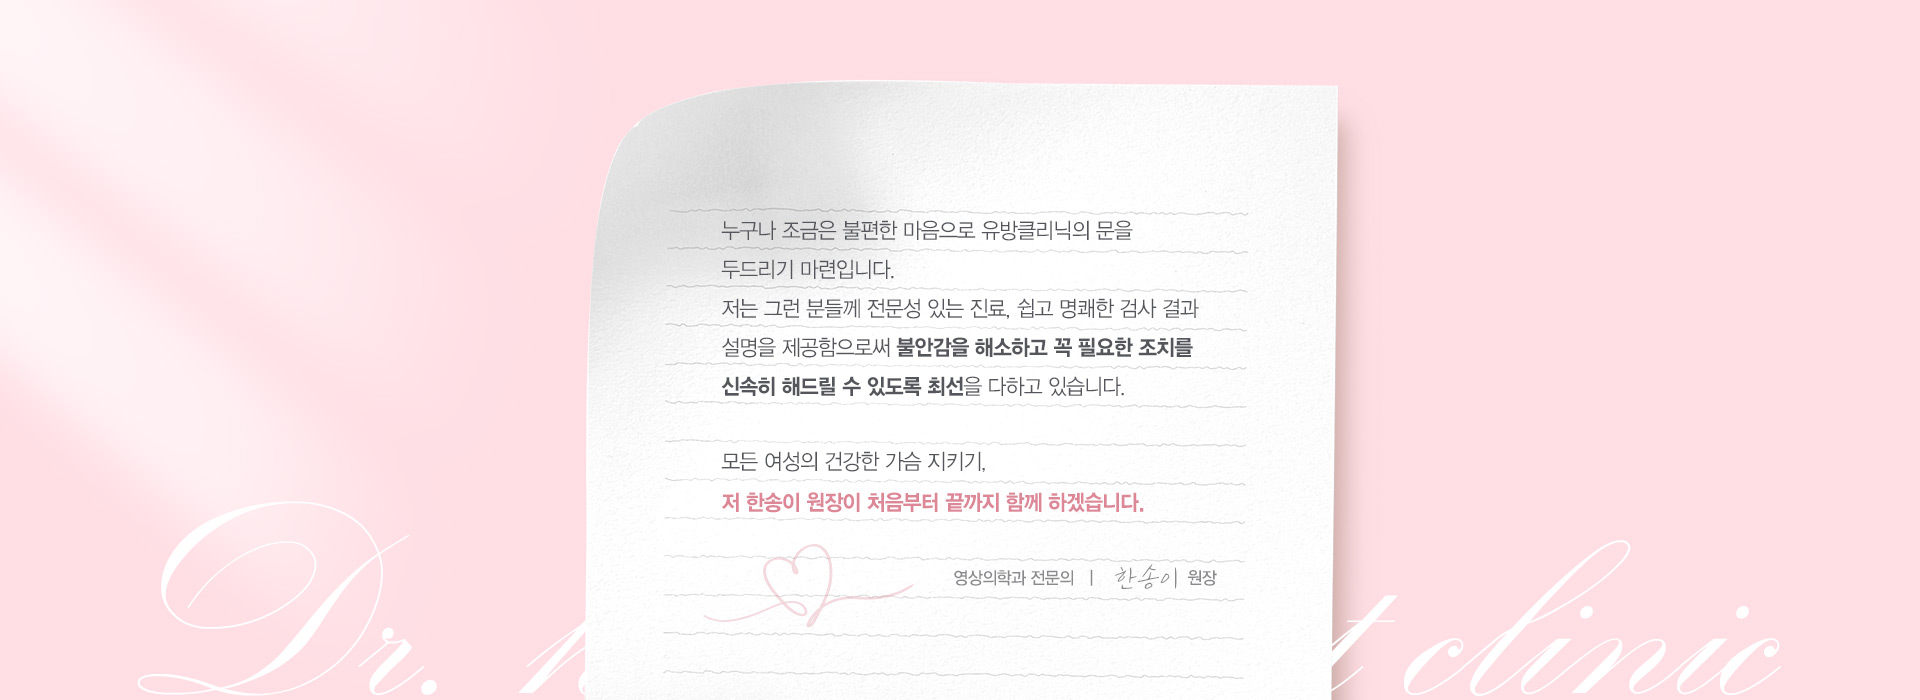 누구나 조금은 불편한 마음으로 유방클리닉의 문을
두드리기 마련입니다.
저는 그런 분들께 전문성 있는 진료, 쉽고 명쾌한 검사 결과
설명을 제공함으로써 불안감을 해소하고 꼭 필요한 조치를
신속히 해드릴 수 있도록 최선을 다하고 있습니다.
모든 여성의 건강한 가슴 지키기,
저 한송이 원장이 처음부터 끝까지 함께 하겠습니다.
영상의학과 전문의 | 한송이 원장
Dr. clinic